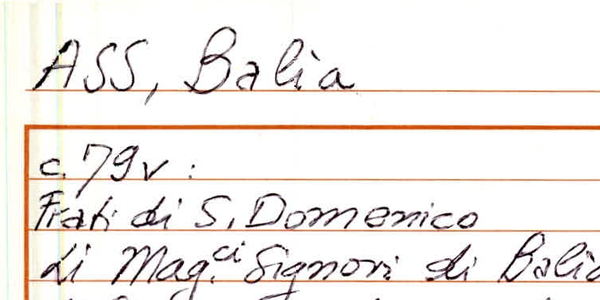 ASS, Balìa
c. 79v :
Frati di S. Domenico
Li Mag.ci Signori di Balia